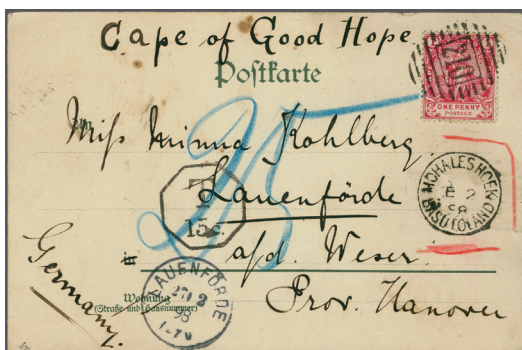 Cape of Good Hope
Postkarte
ONE PENNY
POSTAGE
210
Miss Minna Kohlberg
MOHALESHOEK
2
98
BASUTOLAND
T
15c.
25
Lauenförde
a/d. Weser.
Germany.
LAUENFÖRDE
98
Wohnung
(Straße und Hausnummer)
Prov. Hanover